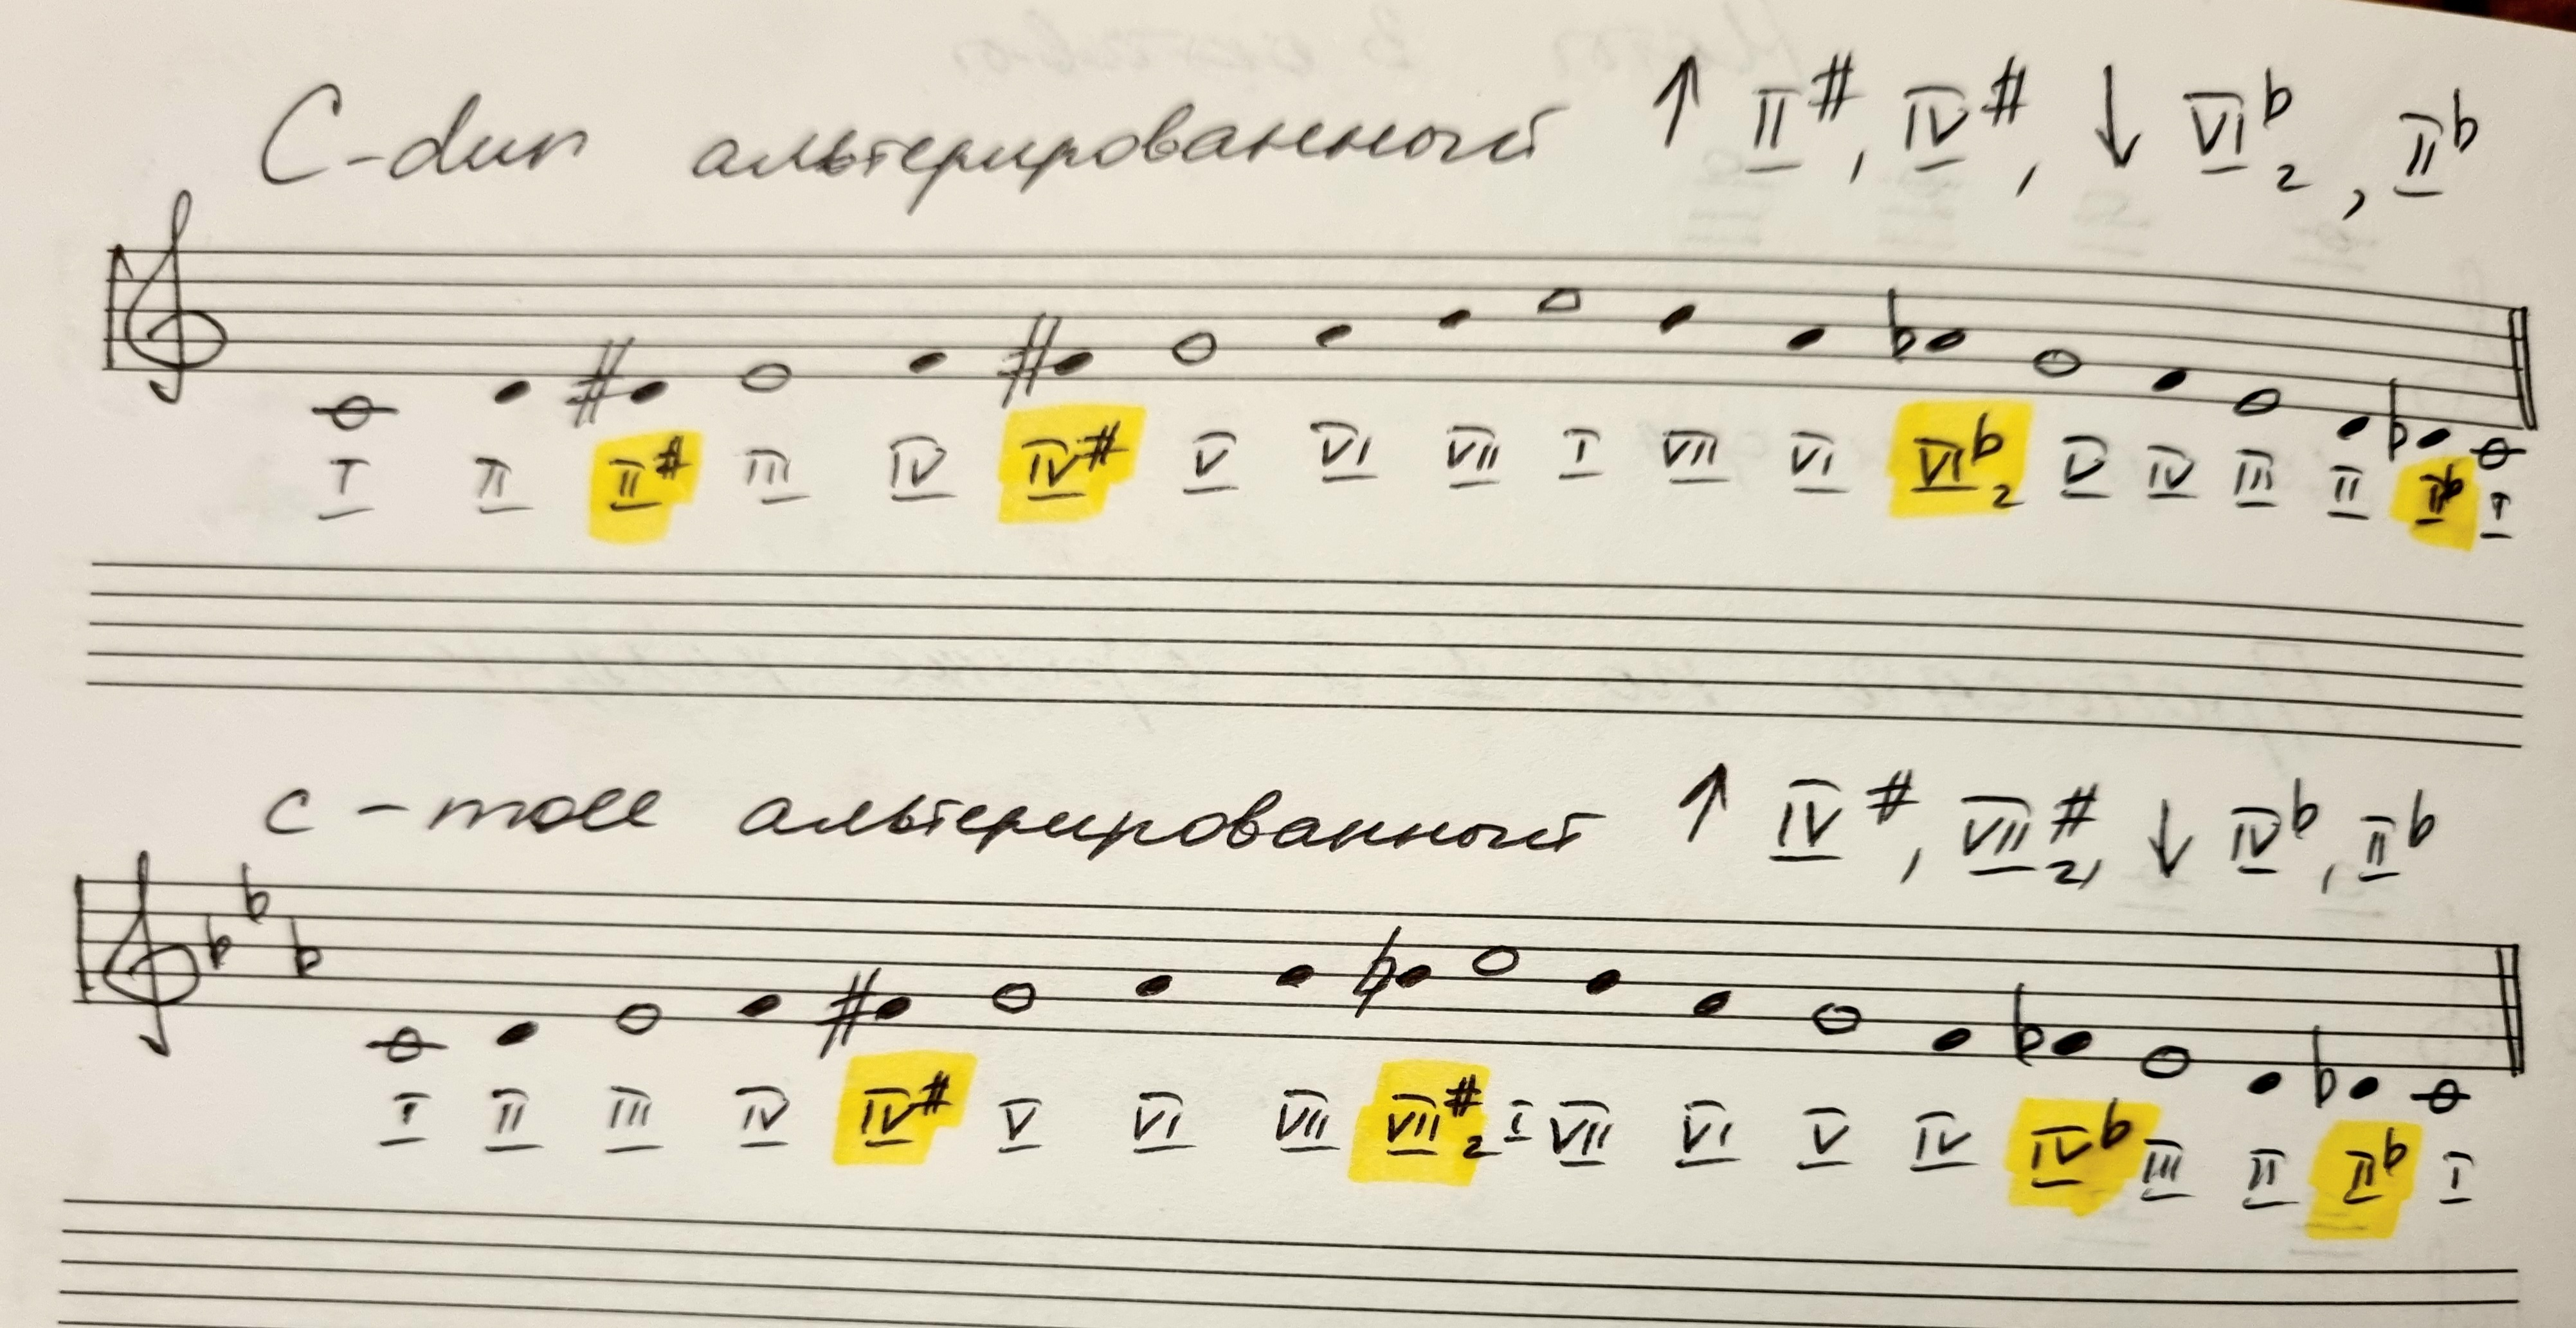 C-dur альтерированный ↑ II#, IV#, ↓ VIb2, IIb
I II II# III IV IV# V VI VII I VII VI VIb2 V IV III II IIb I
c-moll альтерированный ↑ IV#, VII#2, ↓ IVb, IIb
I II III IV IV# V VI VII VII#2 I VII VI V IV IVb III II IIb I